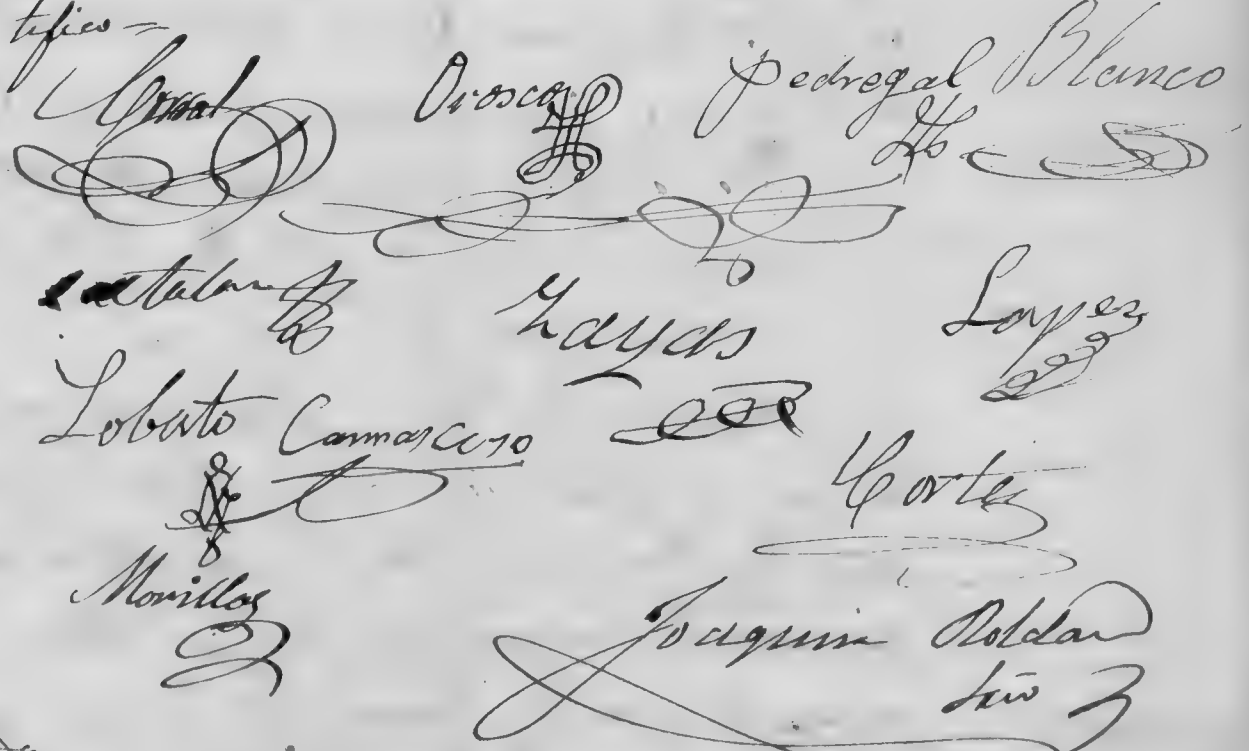 tifico =
Corral Orosco Pedregal Blanco
Catalan Zayas Lopez
Lobato Carrascoso
Cortes
Morillas
Joaquin Roldan
Srio